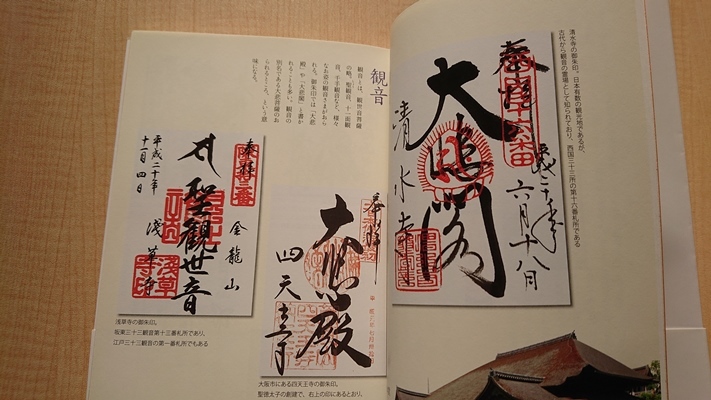 清水寺の御朱印。日本有数の観光地であるが、
古代から観音の霊場として知られており、西国三十三所の第十六番札所である
奉拝
大悲閣
清水寺
平成二十年
六月十八日
観音
観音とは、観世音菩薩
の略。聖観音、十一面観
音、千手観音など、様々
なお姿の観音さまがおら
れる。御朱印では「大悲
殿」や「大悲閣」と書か
れることも多い。観音の
別名である大悲菩薩のお
られるところ、という意
味になる。
奉拝
大悲殿
四天王寺
大阪市にある四天王寺の御朱印。
聖徳太子の創建で、右上の印にあるとおり、
金龍山
聖観世音
浅草寺
平成二十年
十一月四日
浅草寺の御朱印。
坂東三十三観音第十三番札所であり、
江戸三十三観音の第一番札所でもある